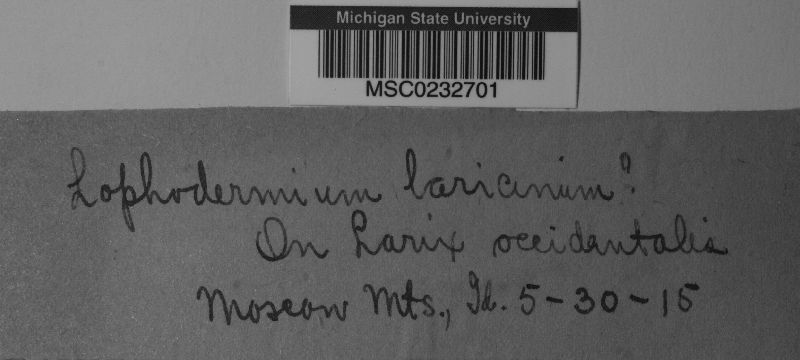 Michigan State University
MSC0232701
Lophodermium laricinum?
On Larix occidentalis
Moscow Mts., Id. 5-30-15